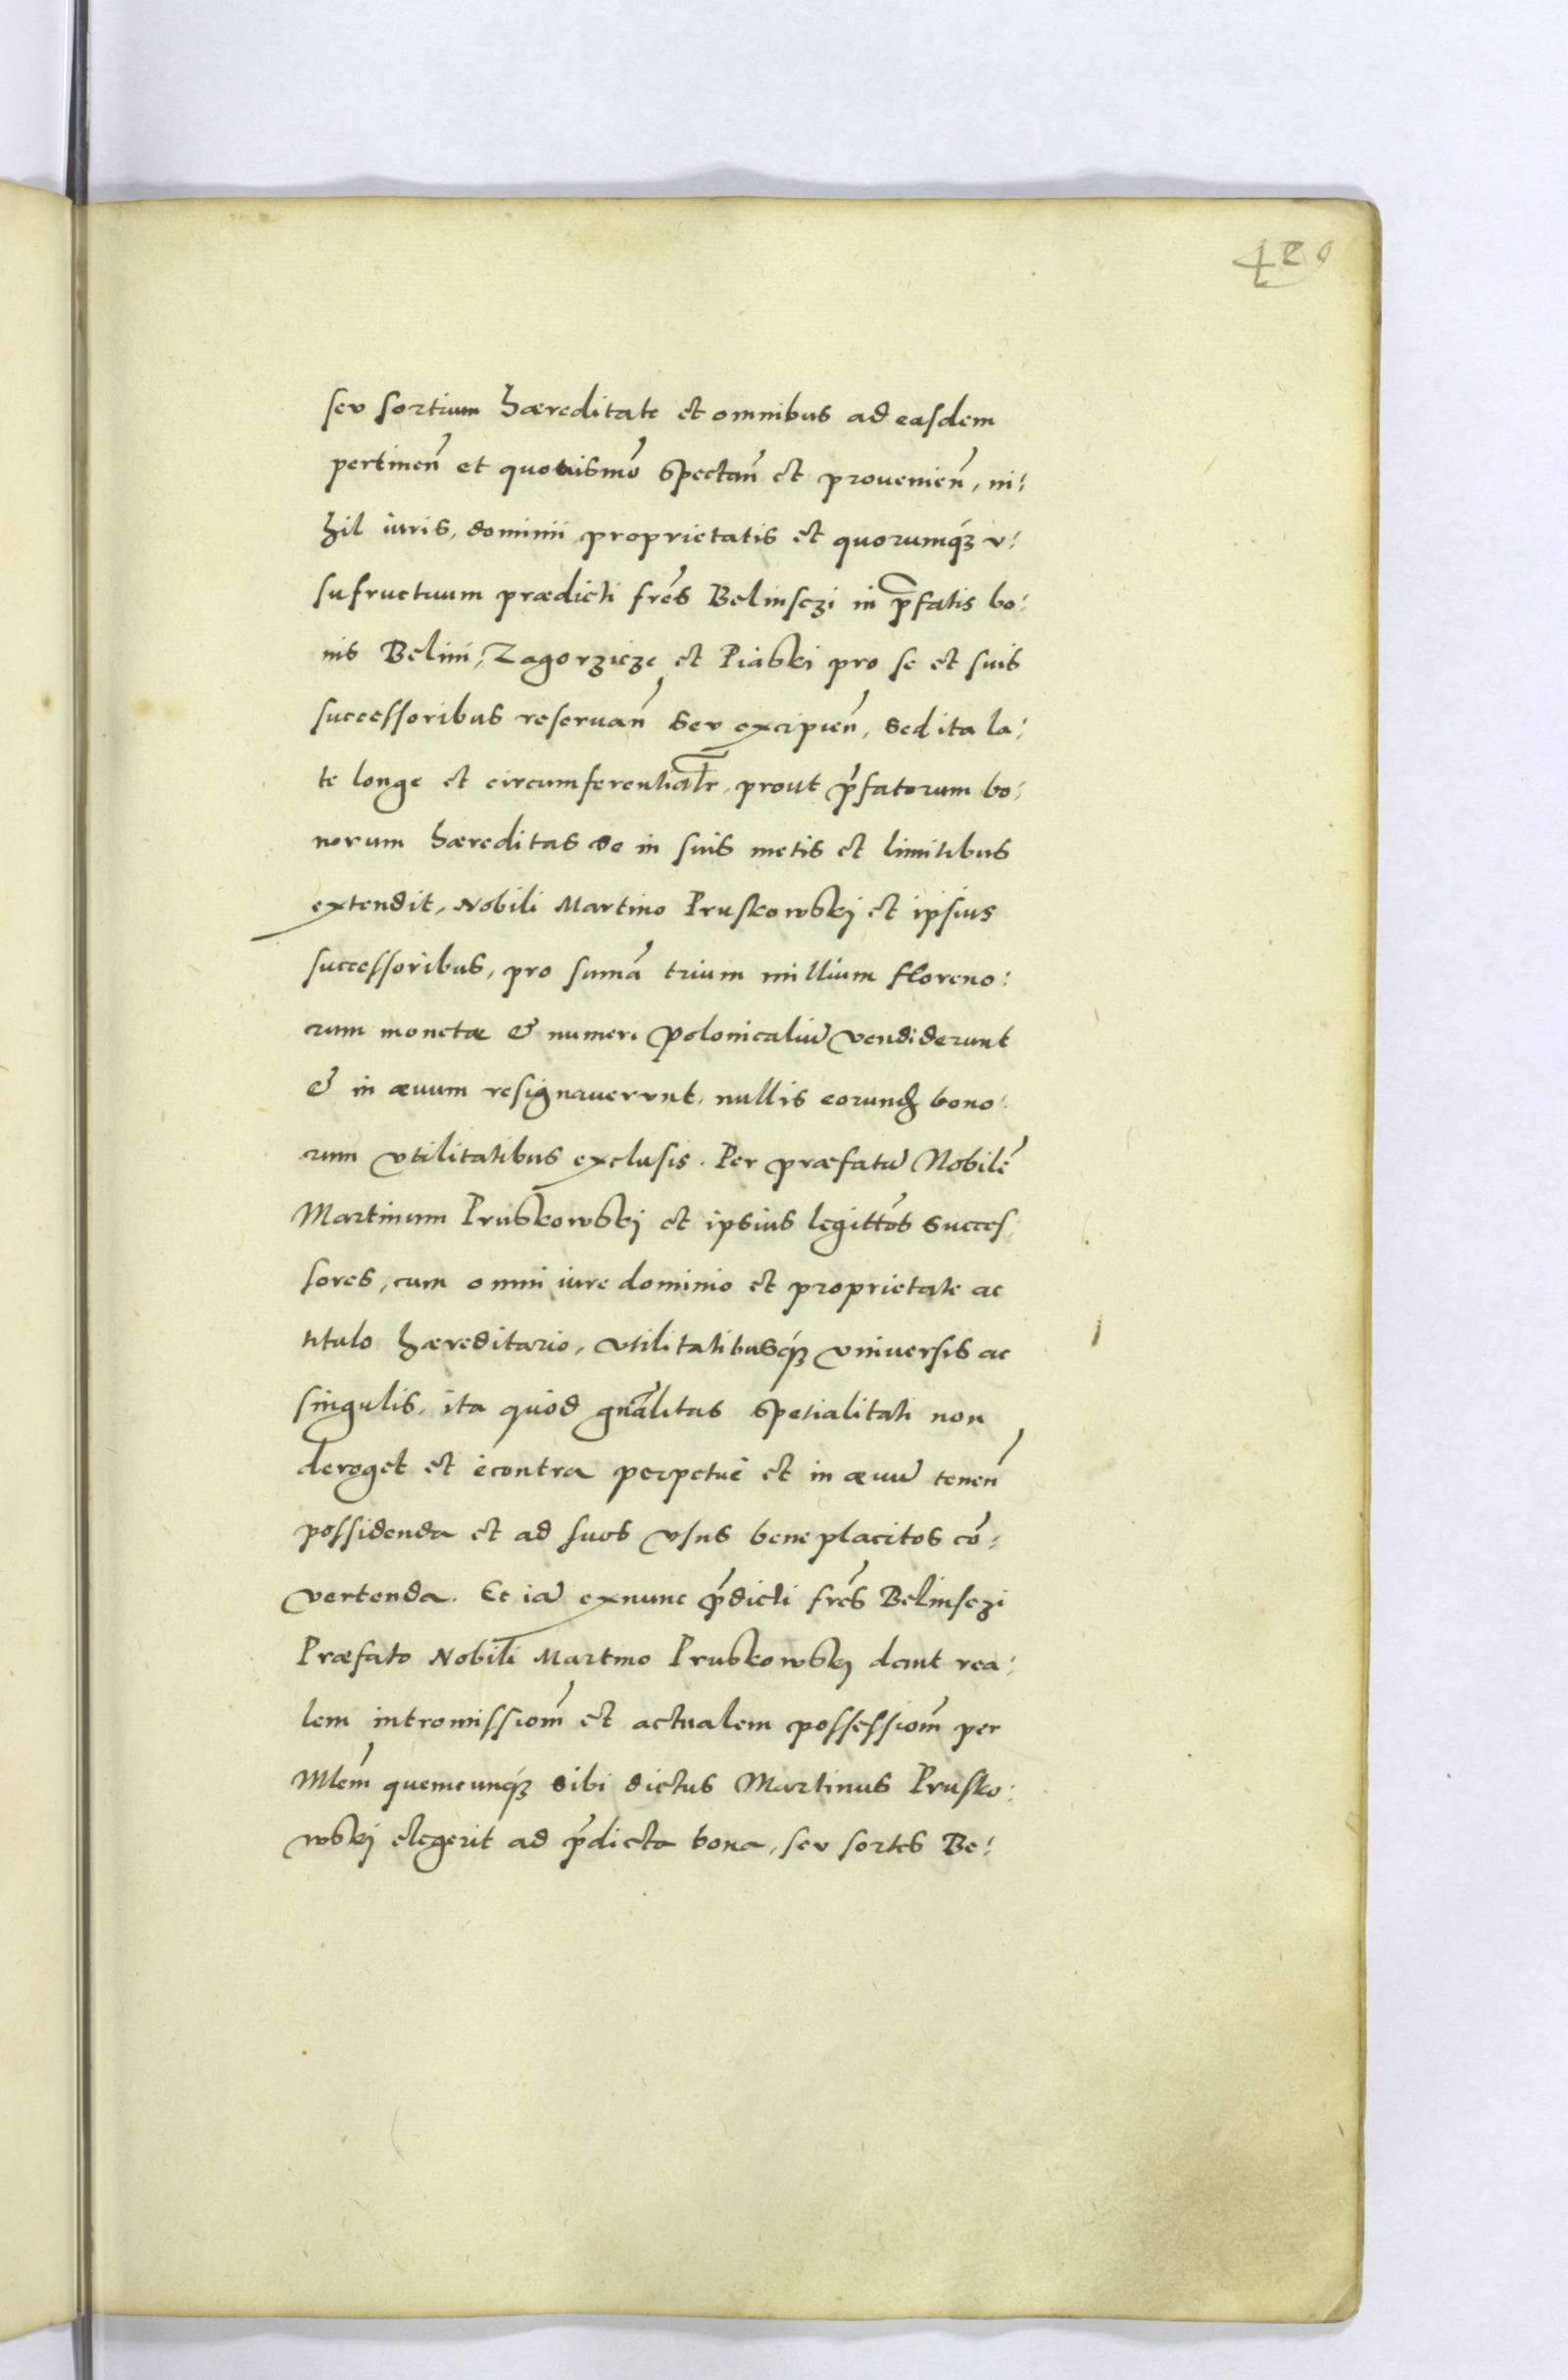 420
seu sortium hæreditate et omnibus ad easdem
pertinen̄ et quouismo᷃ spectan̄ et prouenien̄, ni:
hil iuris, dominii proprietatis et quorumq́ꝫ v:
sufructuum prædicti frēs Belinsczi in p̄fatis bo:
nis Belini, Zagorzicze et Piaski pro se et suis
successoribus reseruan̄ seu excipien̄, sed ita la:
te longe et circumferentialr̄, prout p̄fatorum bo:
norum hæreditas se in suis metis et limitibus
extendit, Nobili Martino Pruskowskj et ipsius
successoribus, pro sum̄a trium millium floreno:
rum monetæ & numeri Polonicaliū vendiderunt
& in æuum resignauerunt, nullis eorund̄ bono:
rum vtilitatibus exclusis. Per præfatū Nobilē
Martinum Pruskowskj et ipsius legitt̄os succes
sores, cum omni iure dominio et proprietate ac
titulo hæreditario, vtilitatibusq́ꝫ vniuersis ac
singulis, ita quod gn̄alitas spetialitati non
deroget et econtra perpetue et in æuū tenen̄
possidenda et ad suos vsus beneplacitos cō:
vertenda. Et iā exnunc p̄dicti frēs Belinsczi
Præfato Nobili Martino Pruskowskj dant rea:
lem intromissiom̄ et actualem possessiom̄ per
Mlem̄ quemcunq́ꝫ sibi dictus Martinus Prusko:
wskj elegerit ad p̄dicta bona, seu sortes Be: